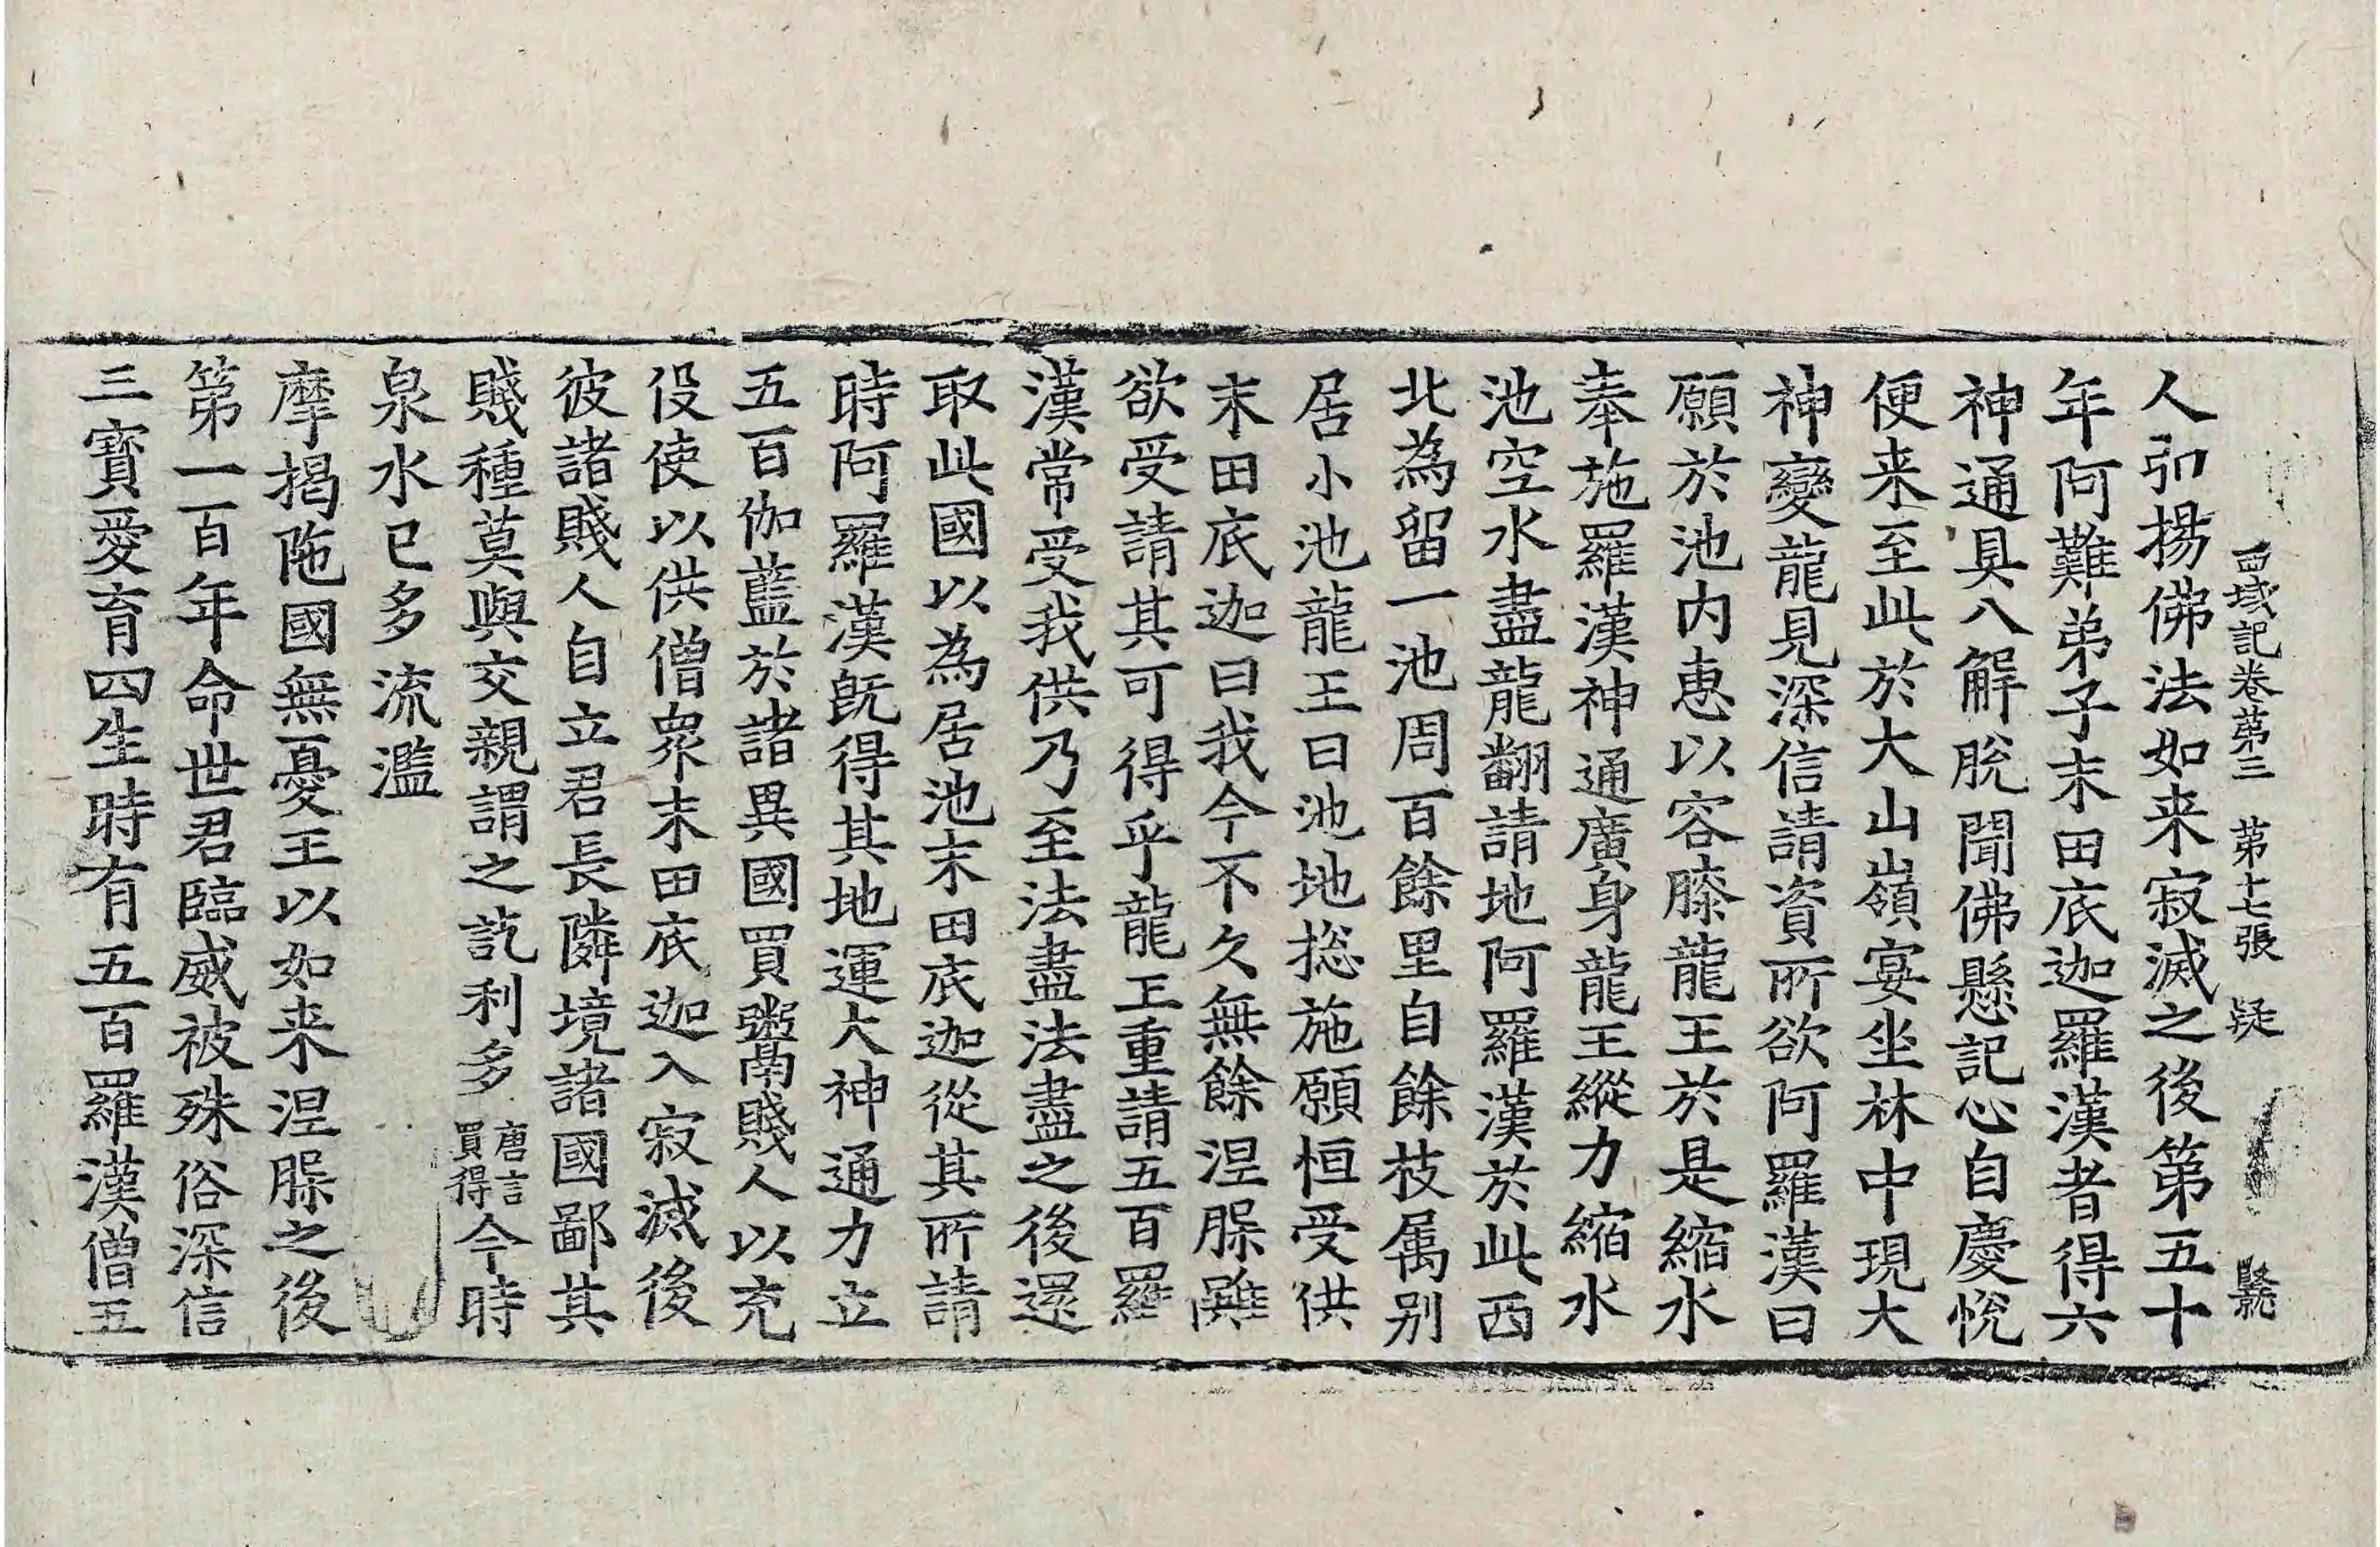 西域記卷第三 第十七張 疑
人弘揚佛法如来寂滅之後第五十
年阿難弟子末田底迦羅漢者得六
神通具八解脫聞佛懸記心自慶悅
便来至此於大山嶺宴坐林中現大
神變龍見深信請資所欲阿羅漢曰
願於池内惠以容膝龍王於是縮水
奉施羅漢神通廣身龍王縱力縮水
池空水盡龍翻請地阿羅漢於此西
北為留一池周百餘里自餘枝属别
居小池龍王曰池地捴施願恒受供
末田底迦曰我今不久無餘涅槃雖
欲受請其可得乎龍王重請五百羅
漢常受我供乃至法盡法盡之後還
取此國以為居池末田底迦從其所請
時阿羅漢旣得其地運大神通力立
五百伽藍於諸異國買鬻賤人以充
役使以供僧眾末田底迦入寂滅後
彼諸賤人自立君長隣境諸國鄙其
賤種莫與交親謂之訖利多唐言買得今時
泉水已多流濫
摩揭陁國無憂王以如来涅槃之後
第一百年命世君臨威被殊俗深信
三寶愛育四生時有五百羅漢僧五